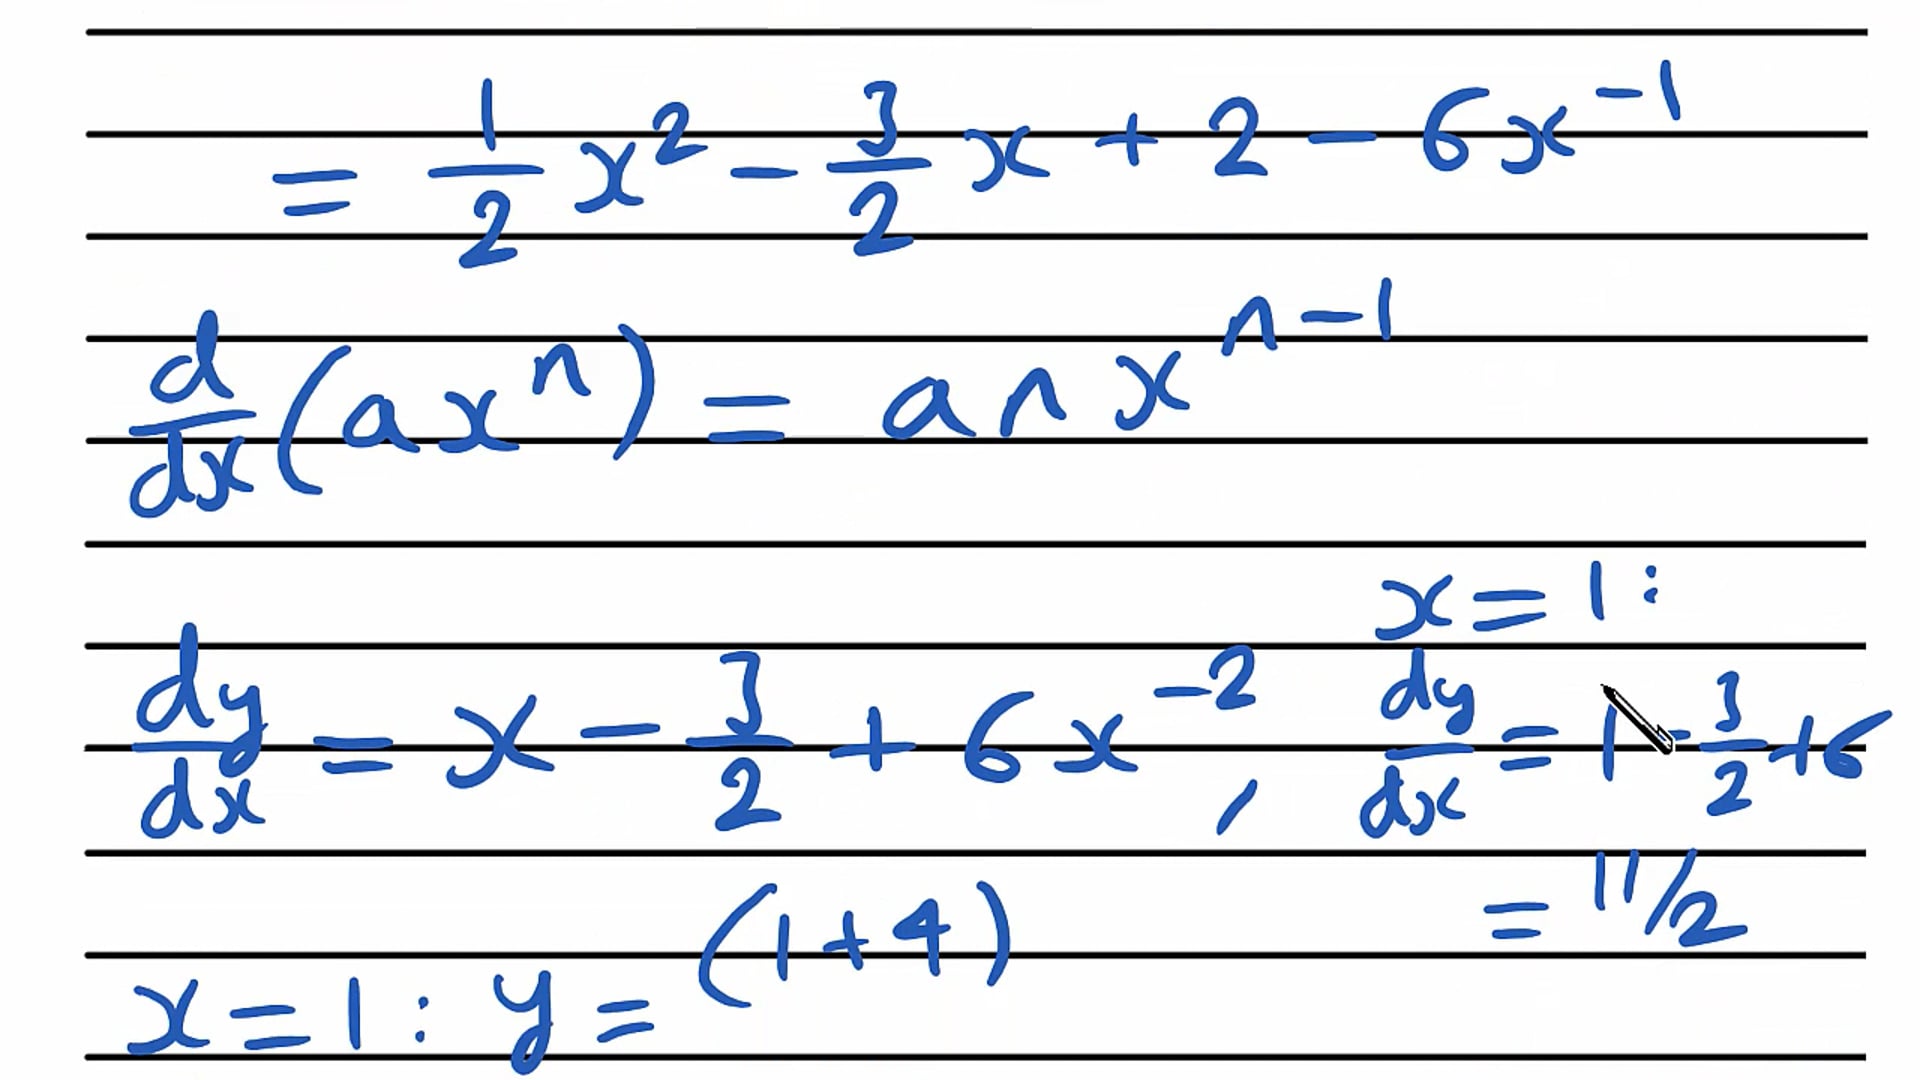 = 1/2 x² - 3/2 x + 2 - 6x⁻¹
d/dx (axⁿ) = anxⁿ⁻¹
x = 1 :
dy/dx = x - 3/2 + 6x⁻² , dy/dx = 1 - 3/2 + 6
= 11/2
x = 1 : y = (1+4)